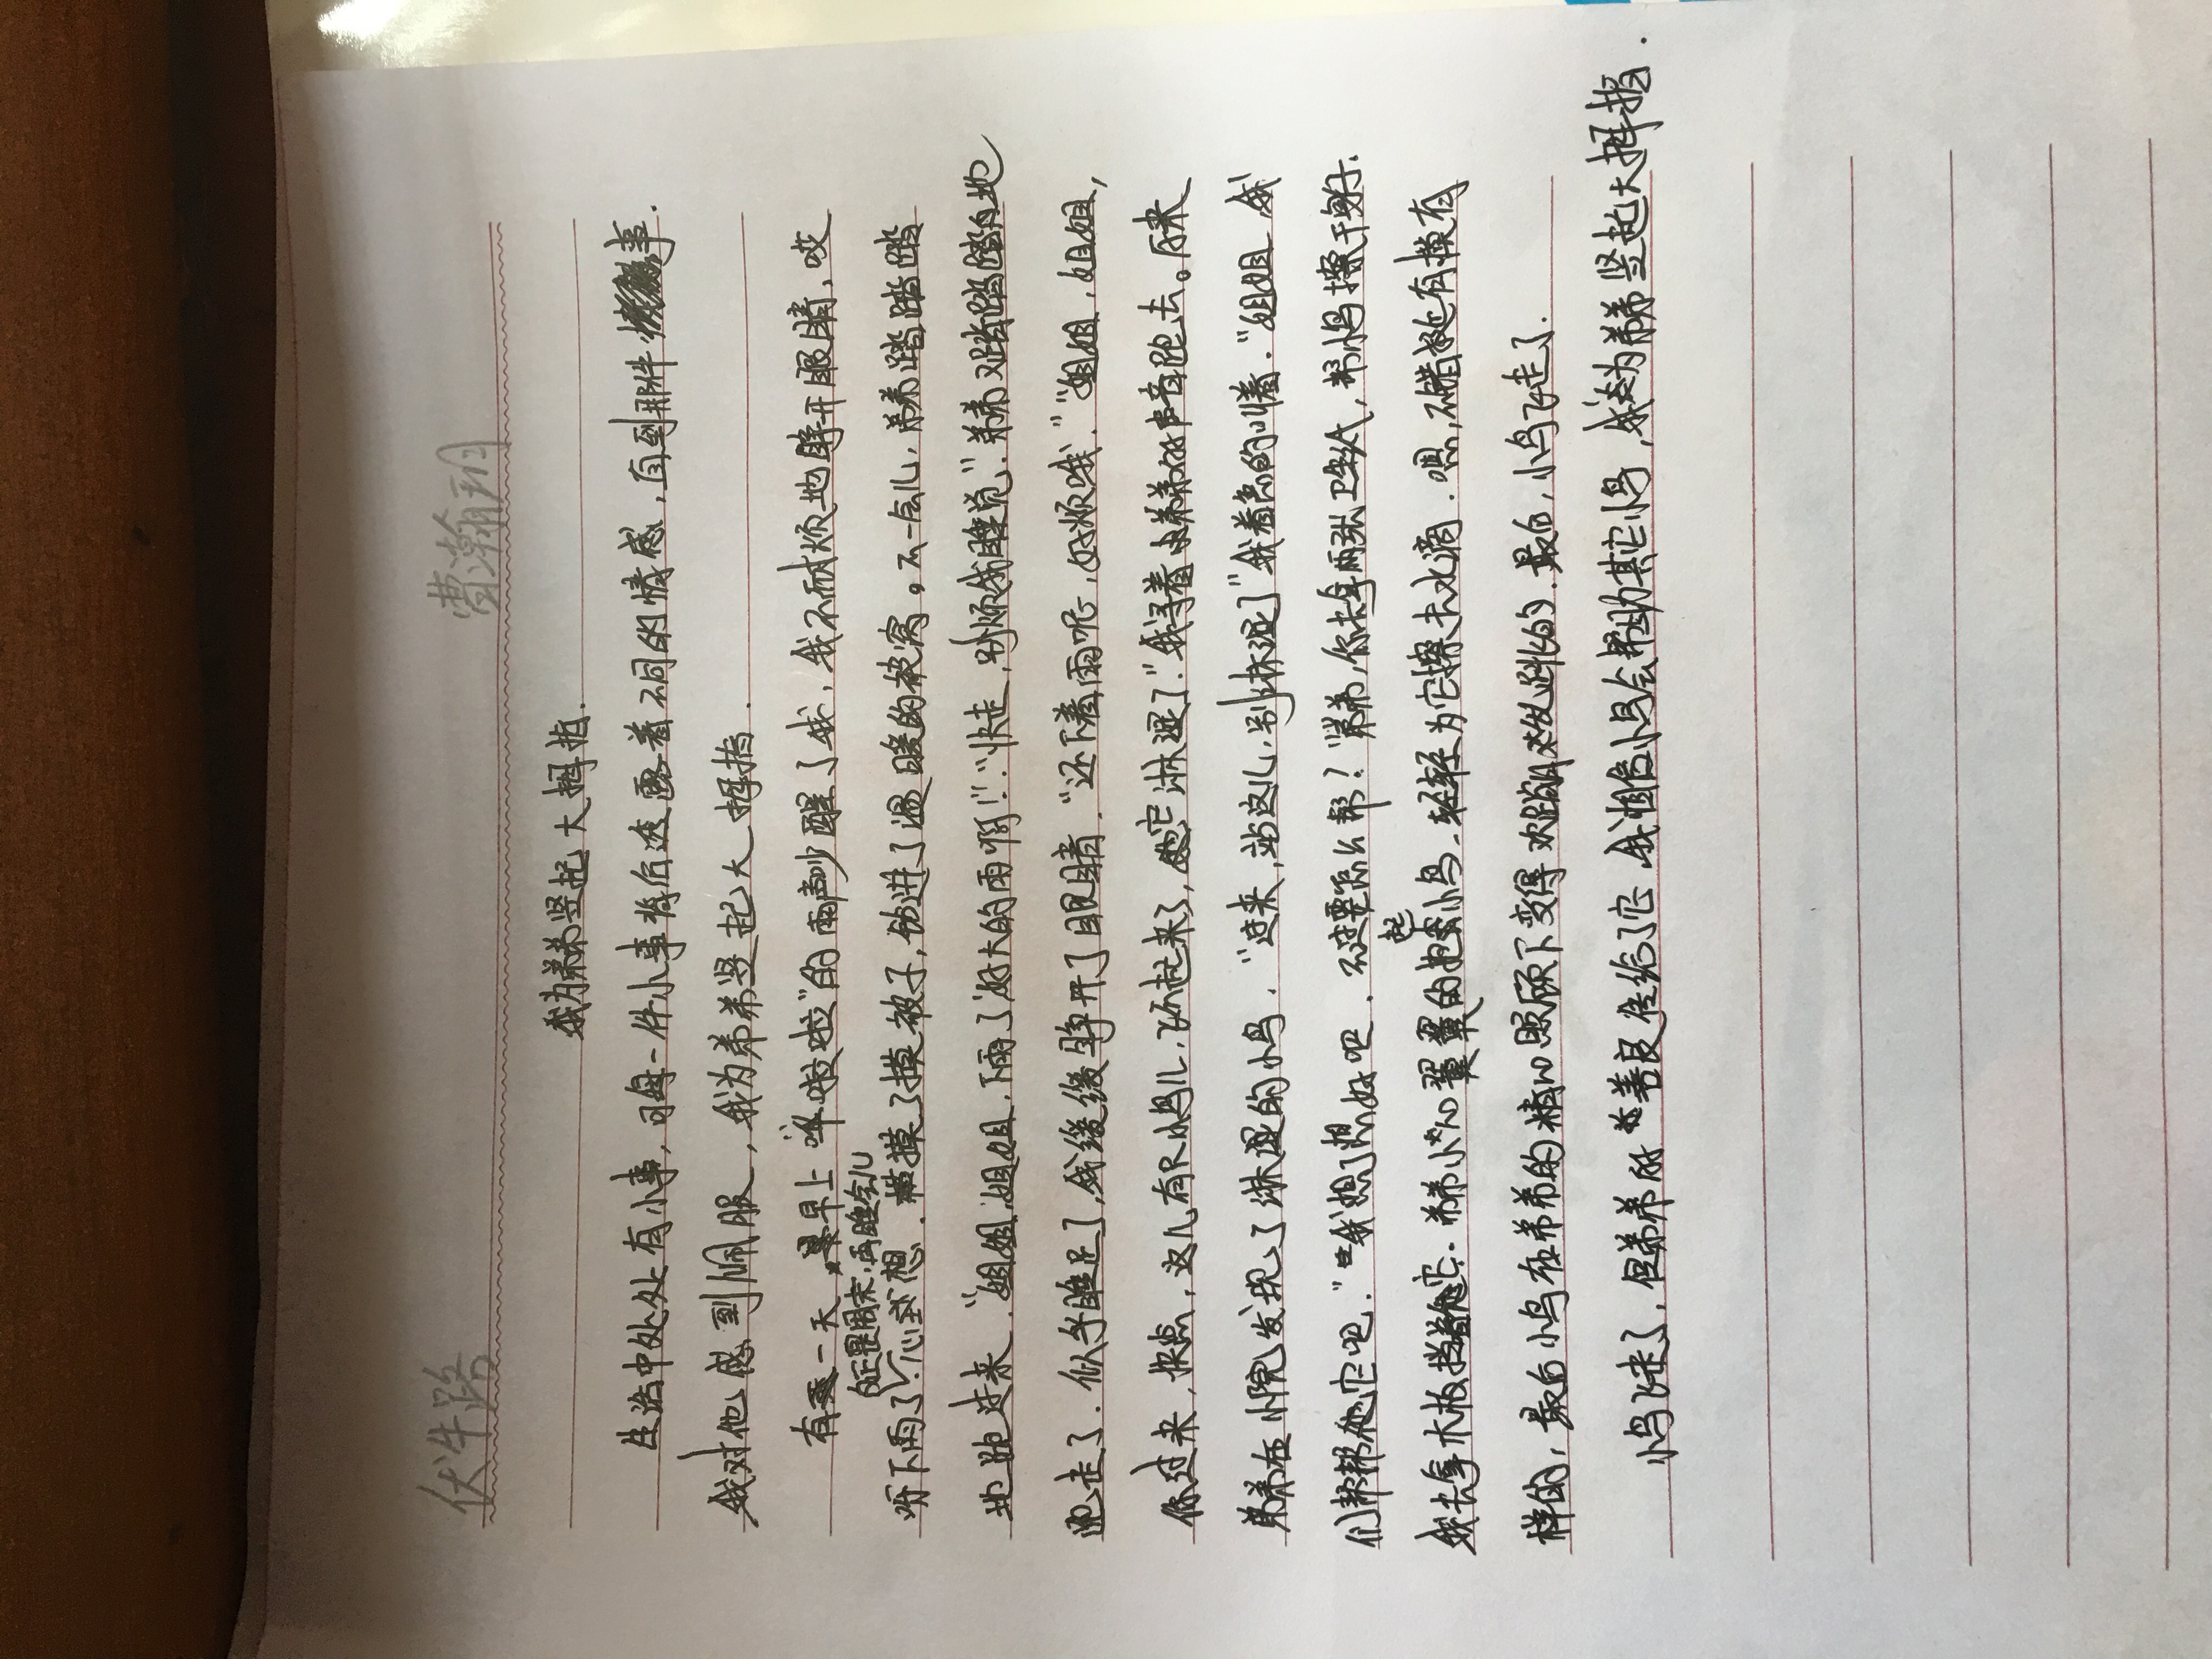 伏牛路 曹瀚玥
我为弟弟竖起大拇指.
生活中处处有小事,可每一件小事背后透露着不同的情感,直到那件事.
我对他感到佩服,我为弟弟竖起大拇指.
有一天早上"哗啦啦"的雨声吵醒了我,我不耐烦地睁开眼睛,哎
呀下雨了.心里想.摸了摸被子,钻进了温暖的被窝。不一会儿,弟弟踏踏踏
但正是周末,再睡会儿
地跑过来."姐姐,姐姐,下雨了好大的雨啊!""快走,别烦我睡觉".弟弟又踏踏踏地
跑走了.似乎睡足了,我缓缓睁开了眼睛."还下着雨呢,好烦哦.""姐姐,姐姐,
你过来,快点,这儿有只小鸟儿,飞不起来了,它淋湿了."我寻着弟弟的声音跑去。原来
弟弟在小院发现了淋湿的小鸟."进来,站这儿,别淋湿了"我着急的叫着."姐姐,我
们帮帮它吧.""我想了想好吧.不过要怎么帮?"弟弟,你去拿两张卫生纸,帮小鸟擦干身子.
我去拿木板挡着它.弟弟小心翼翼的抱起小鸟,轻轻为它擦去水滴.嗯,不错挺有模有
样的,最后小鸟在弟弟的精心照顾下变得欢蹦乱跳的.最后,小鸟飞走了.
小鸟飞走了,但弟弟所善良传给了它,我相信小鸟会帮助其它小鸟,我为弟弟竖起大拇指.